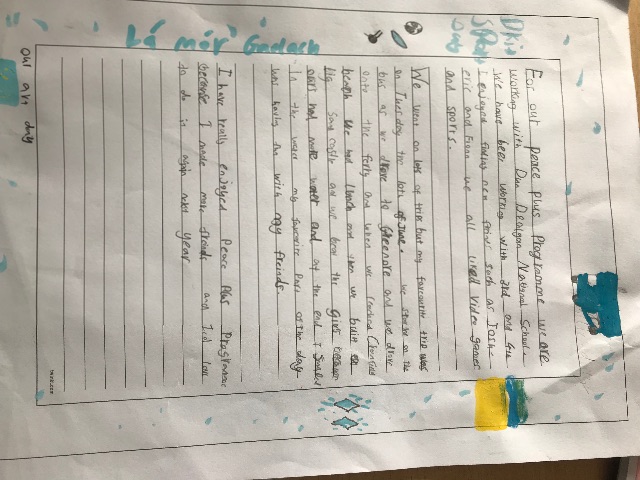 Our art day
Lá mór Gadach
For our Peace Plus Programme we are
working with Dun Dealgan National School.
We have been working with 3rd and 4th
I enjoyed finding new friends such as Josh
eric and Fionn we all liked video games
and sports.
We went on lots of trips but my favourite trip was
on Tuesday the 10th of June. We on the
bus as we drove to Greenore and we drove
onto the ferry and when we reached
beach we had lunch and then we built a
big sand castle and we beat the girls because
ours had more water and at the end I soaked
in the water my favourite Part of the day
was having fun with my friends.
I have really enjoyed Peace Plus Programme
because I made more friends and I'd love
to do it again next year